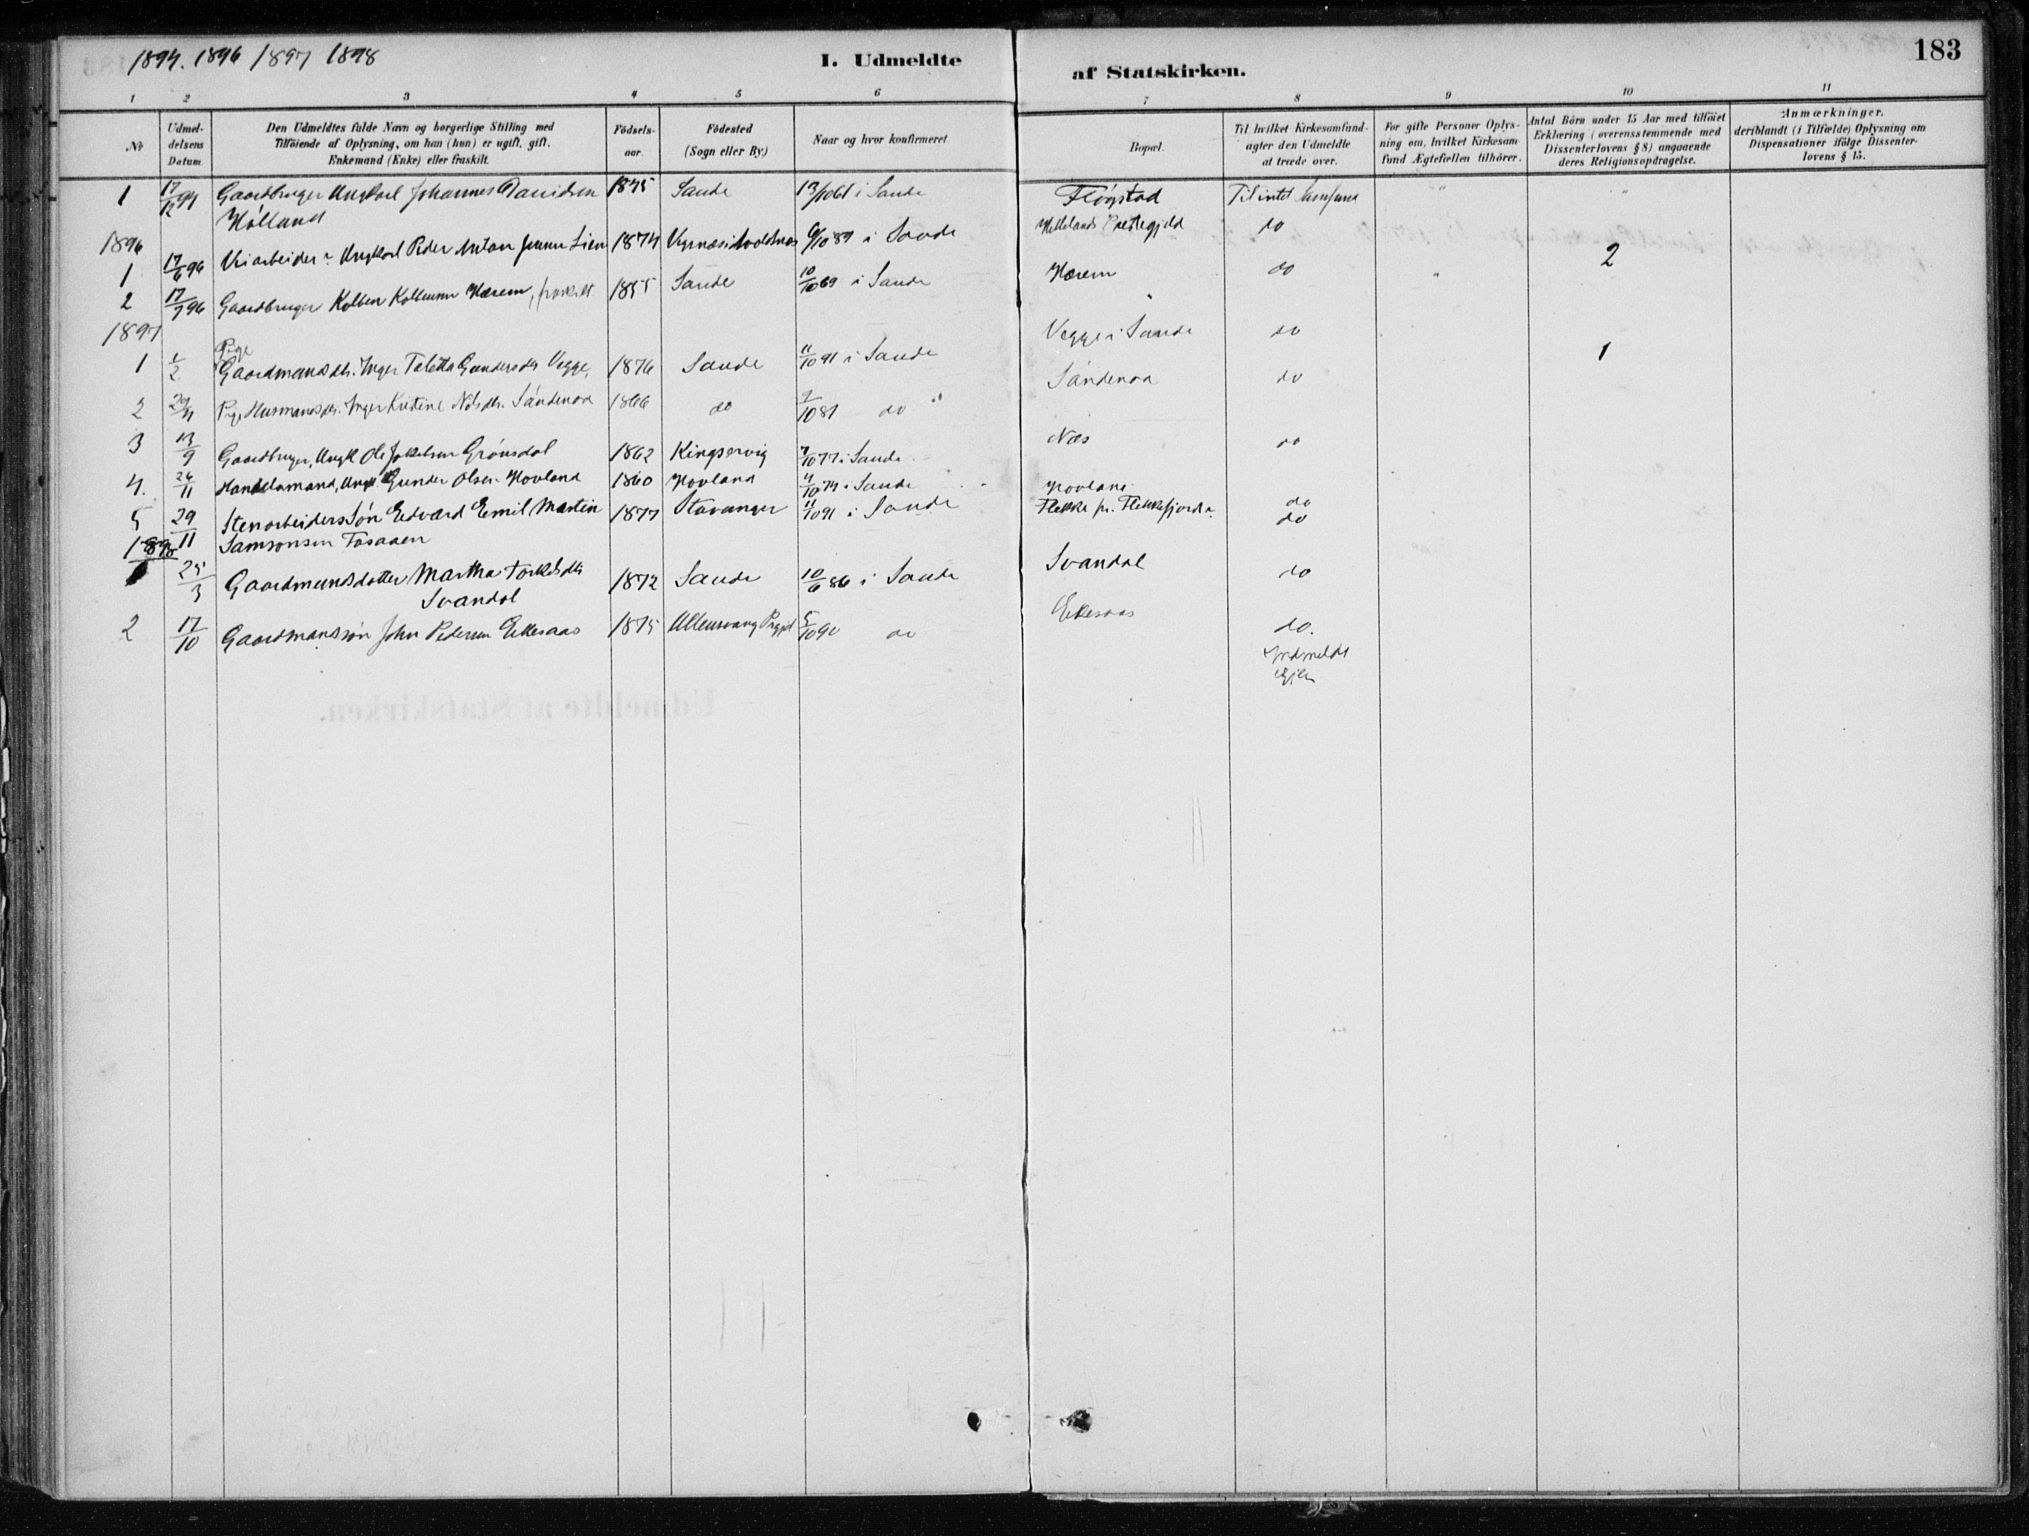 1894. 1896 1897 1898
I. Udmeldte af Statskirken.
183
1 2 3 4 5 6 7 8 9 10 11
No
Udmeldelsens Datum.
Den Udmeldtes fulde Navn og borgerlige Stilling med
Tilföiende af Oplysning, om han (hun) er ugift, gift,
Enkemand (Enke) eller fraskilt.
Födselsaar.
Födested
(Sogn eller By)
Naar og hvor konfirmeret
Bopæl.
Til hvilket Kirkesamfund
agter den Udmeldte
at træde over.
For gifte Personer Oplys-
ning om, hvilket Kirkesam-
fund Ægtefællen tilhörer.
Antal Börn under 15 Aar med tilföiet
Erklæring (overensstemmende med
Dissenterlovens § 8) angaaende
deres Religionsopdragelse.
Anmærkninger.
deriblandt (i Tilfælde) Oplysning om
Dispensationer ifölge Dissenter-
lovens § 15.
1 17/12 94 Gaardbruger Ungkarl Johannes Davidsen 1845 Sande 13/10 61 i Sande Flögstad Til intet Samfund " "
Hölland
1896
1 17/6 96 Ungkarl Peder Anton Lien 1874 6/10 89 i Sande Hellelands Præstegjeld do
2 17/9 96 Gaardbruger Kolben Hærem, fraskilt 1855 Sande 10/10 69 i Sande Hærem do " 2
1897
Pige
1 1/2 Gaardmandsdtr. Inger Taletta Gundersdtr Vegge, 1876 Sande 11/10 91 i Sande Vegge i Sande do
2 29/4 Pige Husmandsdtr. Inger Kristine Nilsdtr. Sandenaa 1866 do 2/10 81 do Sandenaa do 1
3 13/9 Gaardbruger, Ungk Ole Grönsdal 1862 Kingservig 7/10 77 i Sande Næs do
4. 26/11 Handelsmand, Ungk Gunder Olsen Hovland 1860 Hovland 4/10 74 i Sande Hovland do
5 29/11 Stenarbeiders Sön Edvard Emil Martin 1877 Stavanger 11/10 91 i Sande Flekke pr. Flekkefjord do
Samsonsen Tosaaen
1898
25/3 Gaardmandsdatter Martha Torkelsdtr 1872 Sande 10/6 86 i Sande Svandal do
Svandal
2 17/10 Gaardmandssön John Pedersen Eikesaas 1875 Ullensvang Prgjeld 5/10 90 do Eikesaas do.
Indmeldt
Igjen